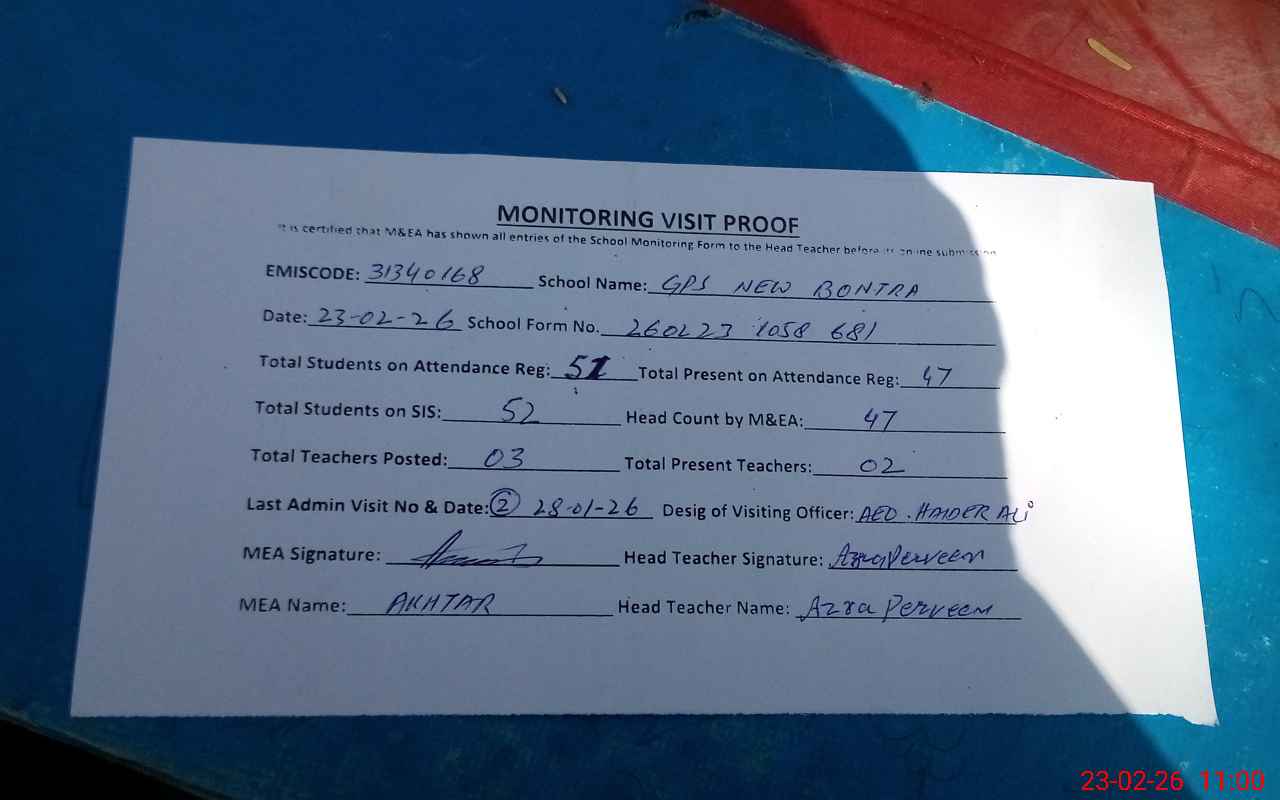 MONITORING VISIT PROOF
It is certified that M&EA has shown all entries of the School Monitoring Form to the Head Teacher before its online submission
EMISCODE: 31340168 School Name: GPS NEW BONTRA
Date: 23-02-26 School Form No. 260223 1058 681
Total Students on Attendance Reg: 51 Total Present on Attendance Reg: 47
Total Students on SIS: 52 Head Count by M&EA: 47
Total Teachers Posted: 03 Total Present Teachers: 02
Last Admin Visit No & Date: 2 28-01-26 Desig of Visiting Officer: AEO. HAIDER ALi
MEA Signature: Head Teacher Signature: Azra Perveen
MEA Name: AKHTAR Head Teacher Name: Azra Perveen
23-02-26 11:00